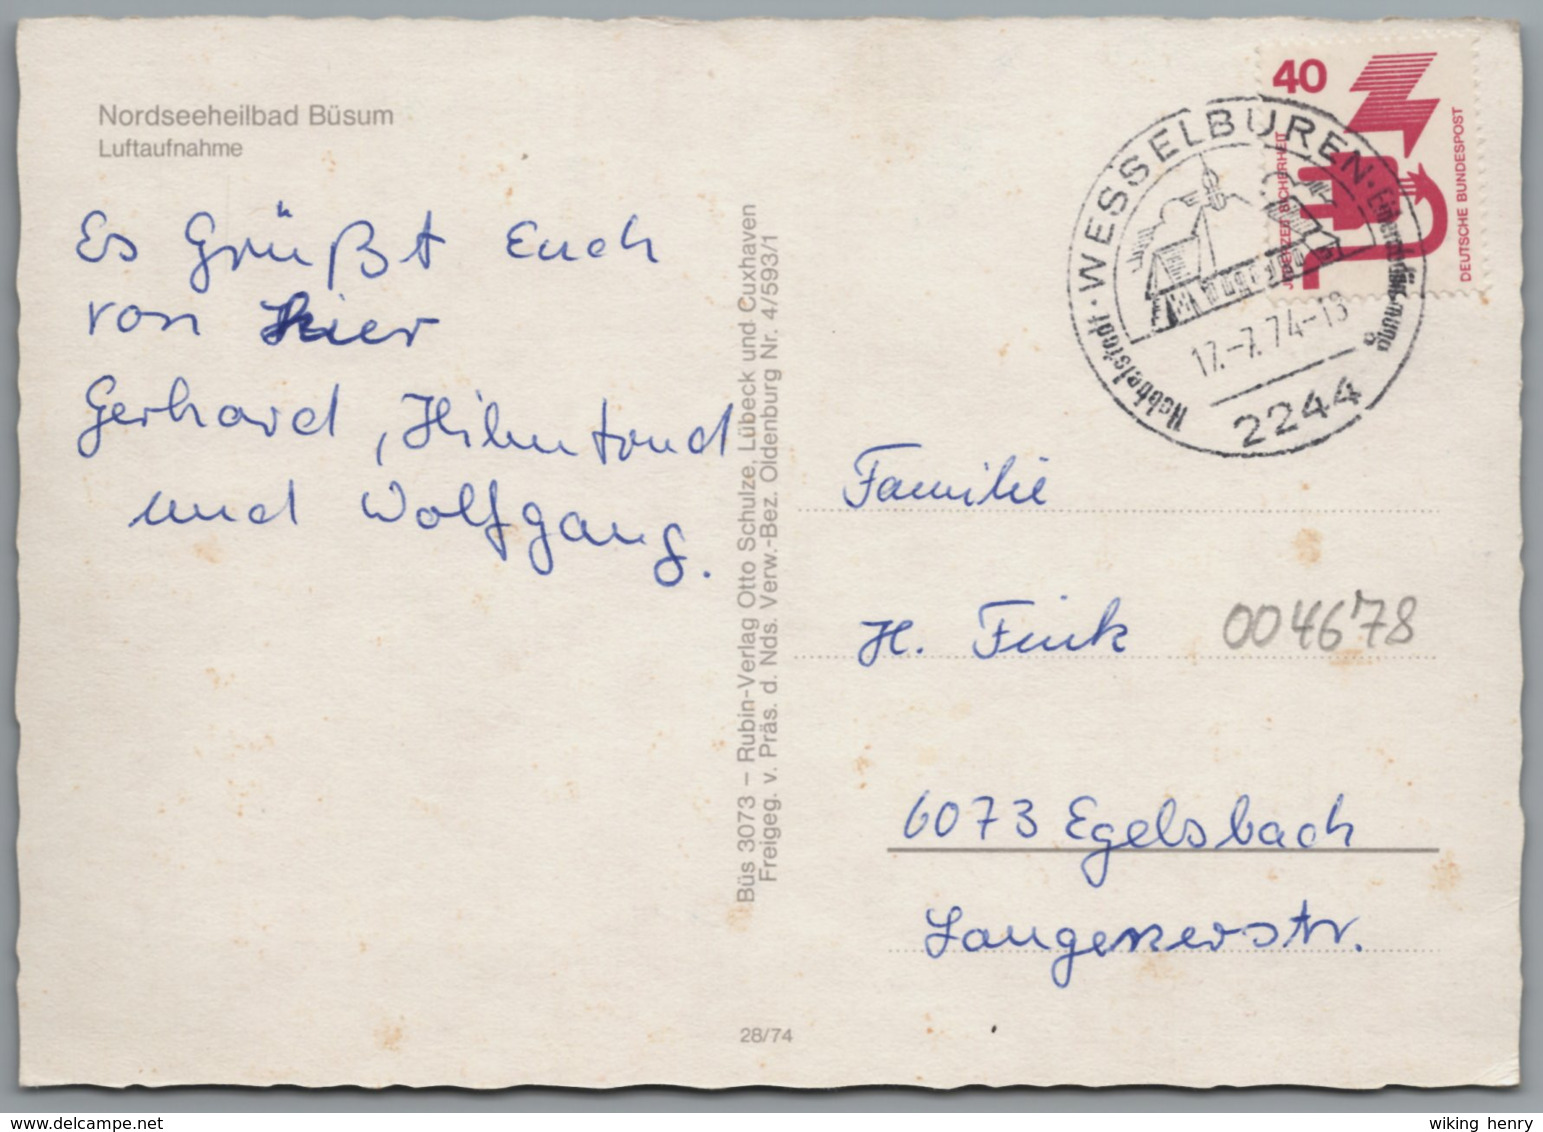 Nordseeheilbad Büsum
Luftaufnahme
Es Grüßt Euch
von hier
Gerhard,
und Wolfgang.
Büs 3073 – Rubin-Verlag Otto Schulze, Lübeck und Cuxhaven
Freigeg. v. Präs. d. Nds. Verw.-Bez. Oldenburg Nr. 4/593/1
28/74
40
JEDERZEIT SICHERHEIT
DEUTSCHE BUNDESPOST
WESSELBUREN
Hebbelstadt
17.-7.74-18
2244
Familie
H. Fink
004678
6073 Egelsbach
delcampe.net
wiking henry